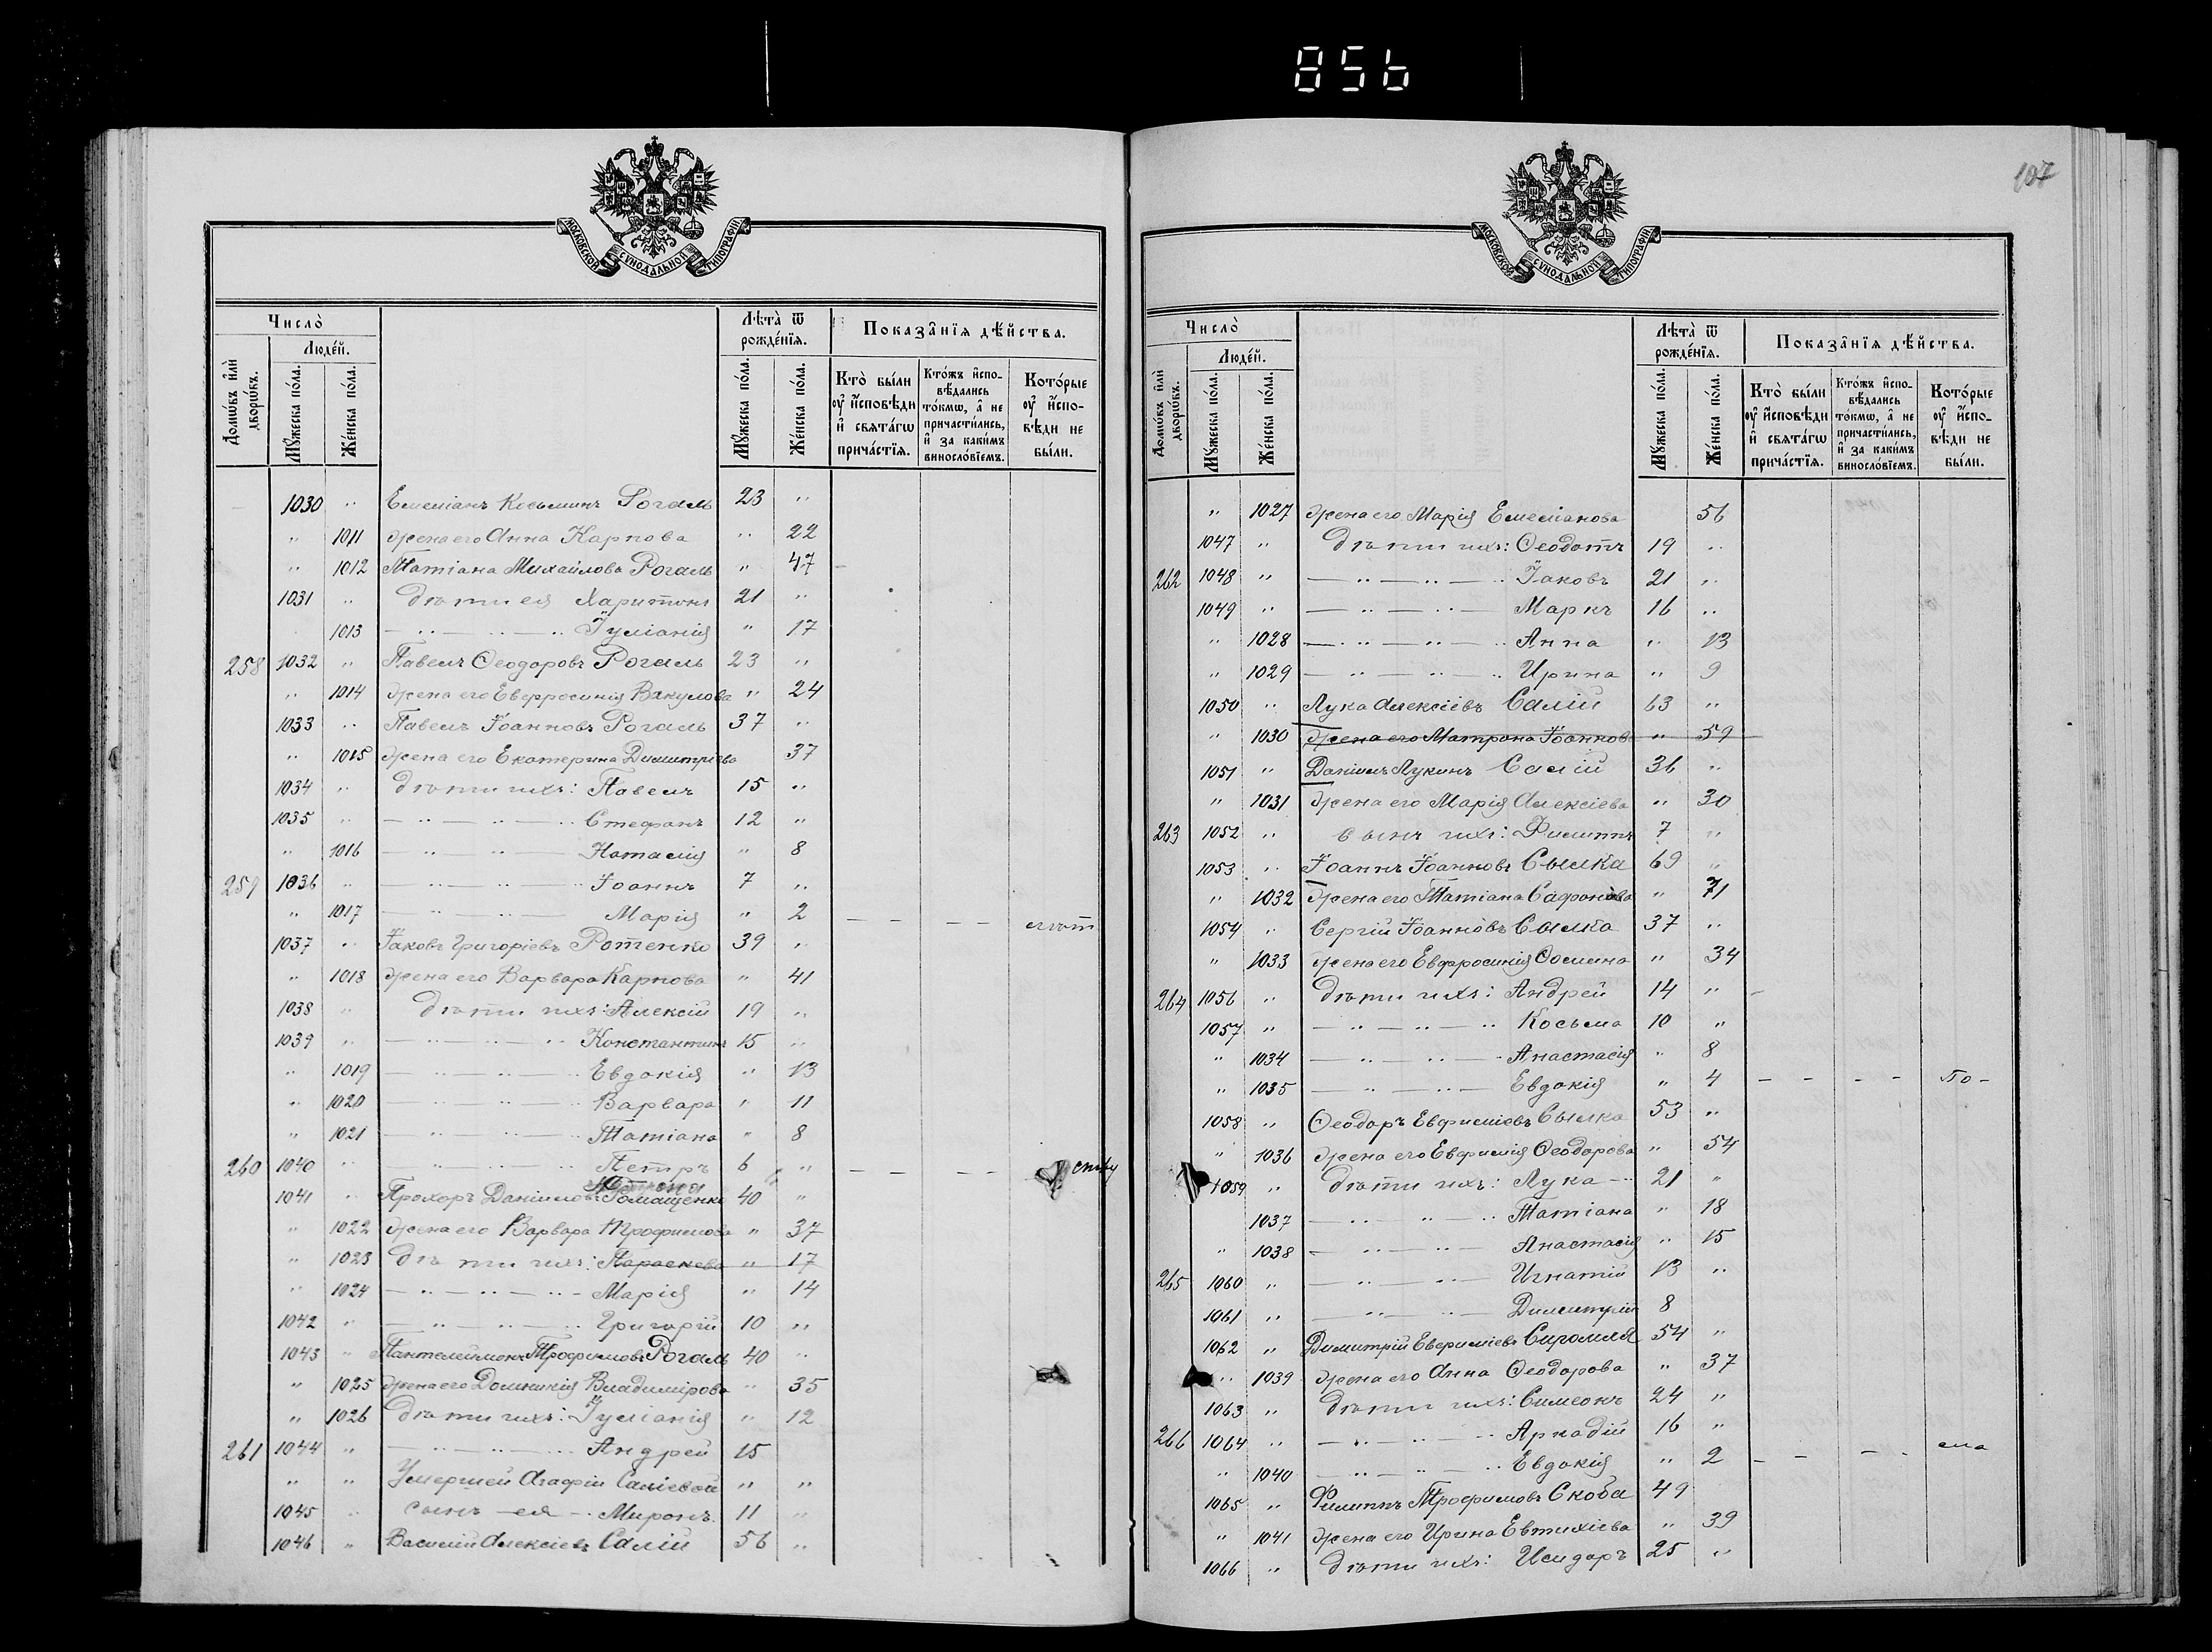 856
МОСКОВСКОЙ СУНОДАЛЬНОЙ ТИПОГРАФІИ
Число̀
Людéй.
Лѣта̀ ѿ рождéнїѧ.
Показа̑нїѧ дѣ́йства.
Домѡ́въ и҆лѝ дворѡ́въ.
Мꙋ́жеска по́ла.
Же́нска по́ла.
Мꙋ́жеска по́ла.
Же́нска по́ла.
Кто̀ бы́ли оу҆ и҆́сповѣди и҆ свѧта́гѡ прича́стїѧ.
Кто́жъ и҆спо-вѣ́дались то́кмѡ, а҆ не причасти́лись, и҆ за каки́мъ винослóвїемъ.
Кото́рые оу҆ и҆́спо-вѣди не бы́ли.
1030 " Емеліанъ Косьминъ Рогаль 23 "
" 1011 жена его Анна Карпова " 22
" 1012 Татіана Михайлова Рогаль " 47
1031 " дѣти ея Харитонъ 21 "
1013 — " — " — " Іуліанія " 17
258 1032 " Павелъ Ѳеодоровъ Рогаль 23 "
" 1014 жена его Евфросинія Вакулова " 24
1033 " Павелъ Іоанновъ Рогаль 37 "
" 1015 жена его Екатерина Димитріева 37
1034 " дѣти ихъ: Павелъ 15 "
1035 " — " — " — " Стефанъ 12 "
" 1016 — " — " — Наталія " 8
259 1036 " — " — " — " Іоаннъ 7 "
" 1017 — " — " — Марія " 2 — — — —
1037 " Іаковъ Григоріевъ Ротенко 39 "
" 1018 жена его Варвара Карпова " 41
1038 " дѣти ихъ: Алексій 19 "
1039 " — " — " — " Константинъ 15 "
" 1019 — " — " — " Евдокія " 13
" 1020 — " — " — " Варвара " 11
" 1021 — " — " — " Татіана " 8
260 1040 " — " — " — " Петръ 6 " — — — —
1041 " Прохоръ Даніиловъ Ромащенко 40 "
" 1022 жена его Варвара Трофимова " 37
" 1023 дѣти ихъ: Параскева " 17
" 1024 — " — " — " — Марія " 14
1042 " — " — " — " Григорій 10 "
1043 " Пантелеимонъ Трофимовъ Рогаль 40 "
" 1025 жена его Домникія Владимірова " 35
" 1026 дѣти ихъ: Іуліанія " 12
261 1044 " — " — " — " Андрей 15
" " Умершей Агафіи Саліевой " "
1045 " сынъ — ея — " Миронъ. 11 "
1046 " Василій Алексіевъ Салій 56 "
107
МОСКОВСКОЙ СУНОДАЛЬНОЙ ТИПОГРАФІИ
Число̀
Людéй.
Лѣта̀ ѿ рождéнїѧ.
Показа̑нїѧ дѣ́йства.
Домѡ́въ и҆лѝ дворѡ́въ.
Мꙋ́жеска по́ла.
Же́нска по́ла.
Мꙋ́жеска по́ла.
Же́нска по́ла.
Кто̀ бы́ли оу҆ и҆́сповѣди и҆ свѧта́гѡ прича́стїѧ.
Кто́жъ и҆спо-вѣ́дались то́кмѡ, а҆ не причасти́лись, и҆ за каки́мъ винослóвїемъ.
Кото́рые оу҆ и҆́спо-вѣди не бы́ли.
" 1027 жена его Марія Емеліанова 56
1047 " дѣти ихъ: Ѳеодотъ 19 "
262 1048 " — " — " — " Іаковъ 21 "
1049 " — " — " — Маркъ 16 "
" 1028 — " — " — " Анна " 13
" 1029 — " — " — " Ирина " 9
1050 " Лука Алексіевъ Салій 63 "
" 1030 жена его Матрона Іоаннова " 59
1051 " Даніилъ Лукинъ Салій 36 "
" 1031 жена его Марія Алексіева " 30
263 1052 " сынъ ихъ: Филиппъ 7 "
1053 " Іоаннъ Іоанновъ Сылка 69 "
" 1032 жена его Татіана Сафонова " 71
1054 " Сергій Іоанновъ Сылка 37 "
" 1033 жена его Евфросинія Ѳомина " 34
264 1056 " дѣти ихъ: Андрей 14 " —
1057 " — " — " — " Косьма 10 "
" 1034 — " — " — Анастасія " 8
" 1035 — " — " — Евдокія " 4 — — — — по —
1058 " Ѳеодоръ Евфиміевъ Сылка 53 "
" 1036 жена его Евфимія Ѳеодорова " 54
1059 " дѣти ихъ: Лука — " 21 "
1037 — " — " — " Татіана " 18
" 1038 — " — " — Анастасія " 15
265 1060 " — " — " — Игнатій 13 "
1061 " — " — Димитрій 8
1062 " Димитрій Евфиміевъ Сиромля 54 "
" 1039 жена его Анна Ѳеодорова " 37
1063 " дѣти ихъ: Симеонъ 24 "
266 1064 " — " — " — " Аркадій 16 "
" 1040 — " — " — " Евдокія " 2 — — — —
1065 " Филиппъ Трофимовъ Скоба 49
" 1041 жена его Ирина Евтихіева " 39
1066 " дѣти ихъ: Исидоръ 25 "